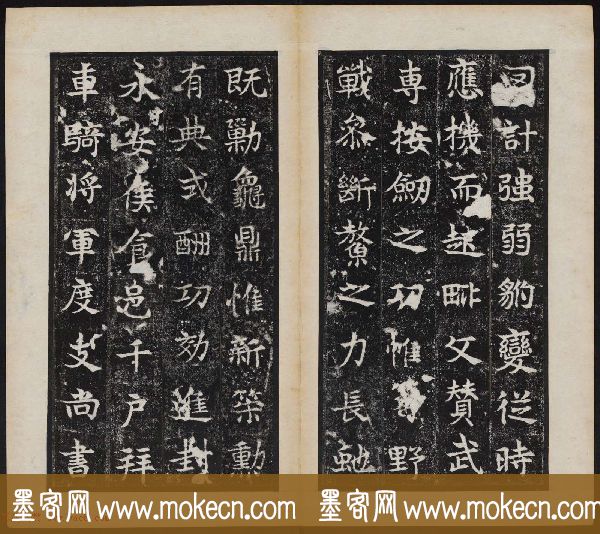 計強弱豹變從時
應機而起毗文贊武
專按劒之功帷野
戰叅斷鼇之力長虵
既勦龜鼎惟新策勳
有典式酬功効進封
永安侯食邑千户拜
車騎將軍度支尚書
墨客网 www.mokecn.com 墨客网 www.mokecn.com